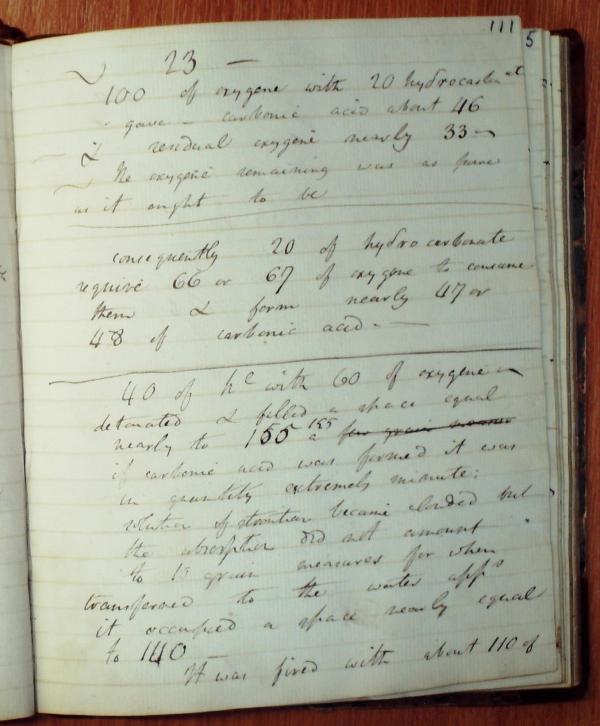 111
5
23 —
100 of oxygene with 20 hydrocarb
gave – carbonic acid about 46
& residual oxygene nearly 33 –
The oxygene remaining was as pure
as it ought to be
consequently 20 of hydrocarbonate
require 66 or 67 of oxygene to consume
them & form nearly 47 or
48 of carbonic acid. —
40 of hc with 60 of oxygene –
detonated & filled a space equal
nearly to 155 155 a few grain
if carbonic acid was formed it was
in quantity extremely minute:
solution of strontian became clouded but
the absorption did not amount
to grain measures for when
transferred to the water apps
it occupied a space nearly equal
to 140
It was fired with about 110 of